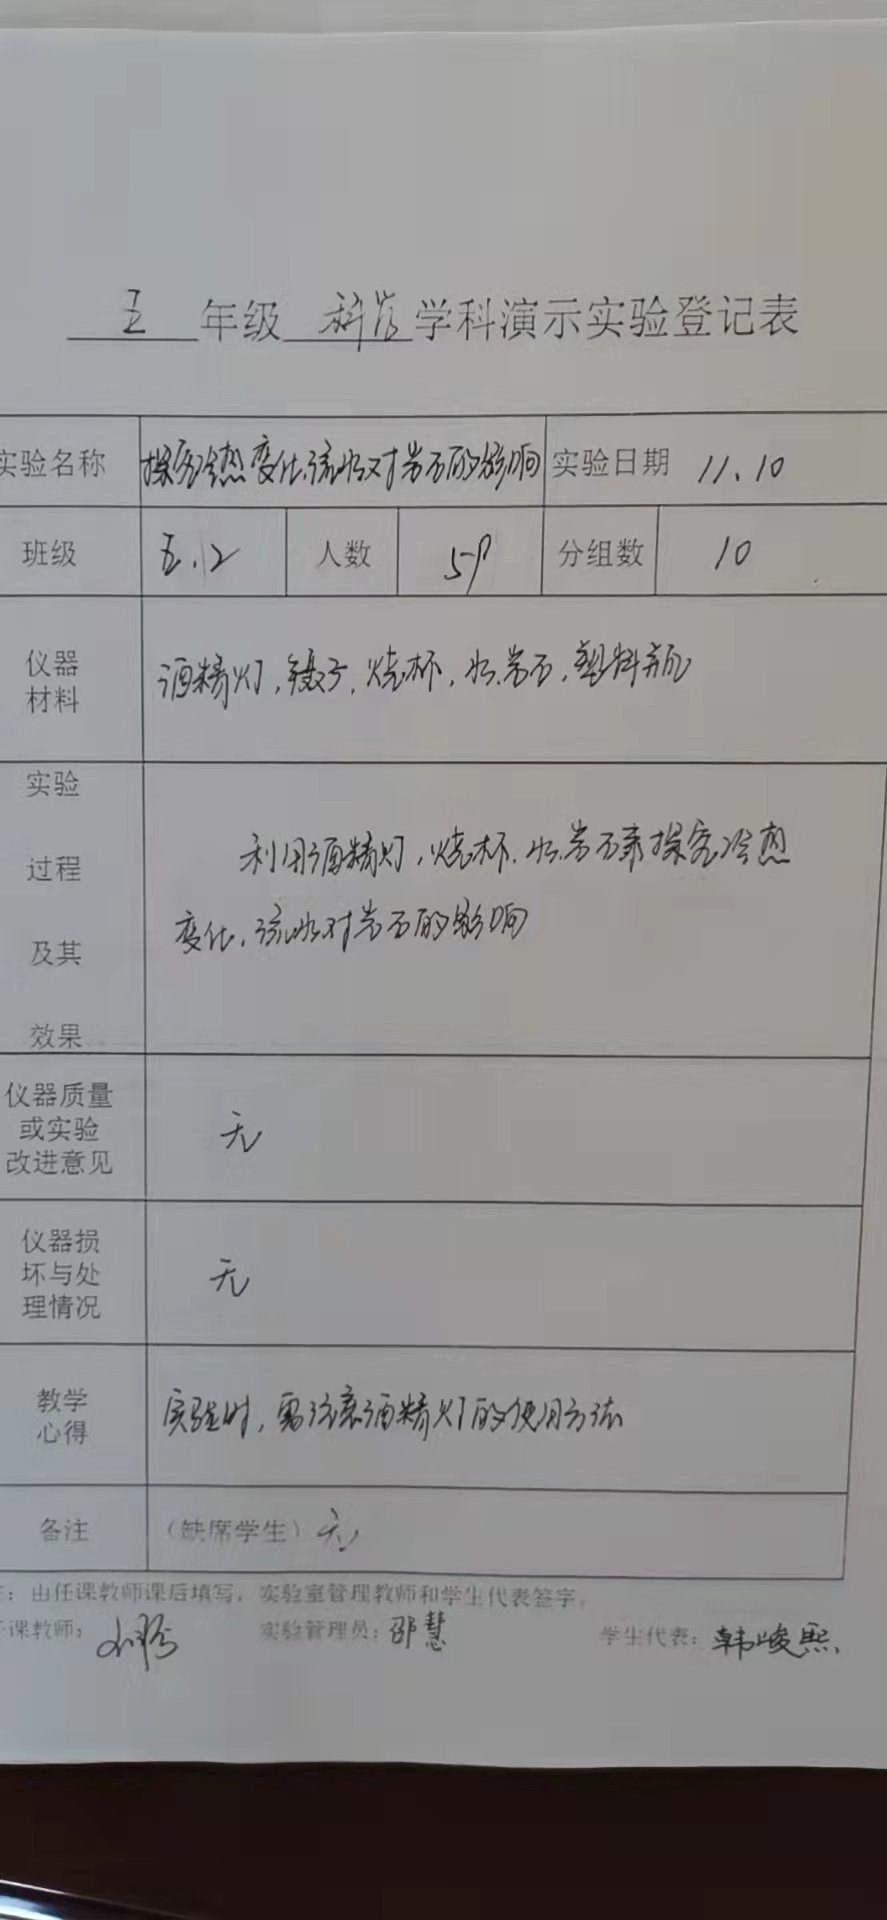 五 年级 科学 学科演示实验登记表
实验名称 探究冷热变化、流水对岩石的影响 实验日期 11.10
班级 五.2 人数 59 分组数 10
仪器
材料
酒精灯,镊子,烧杯,水,岩石,塑料瓶
实验
过程
及其
效果
利用酒精灯,烧杯,水,岩石来探究冷热
变化,流水对岩石的影响
仪器质量
或实验
改进意见
无
仪器损
坏与处
理情况
无
教学
心得
实验时,需注意酒精灯的使用方法
备注 (缺席学生) 无
:由任课教师课后填写,实验室管理教师和学生代表签字。
课教师: 实验管理员:邵慧 学生代表:韩峻熙